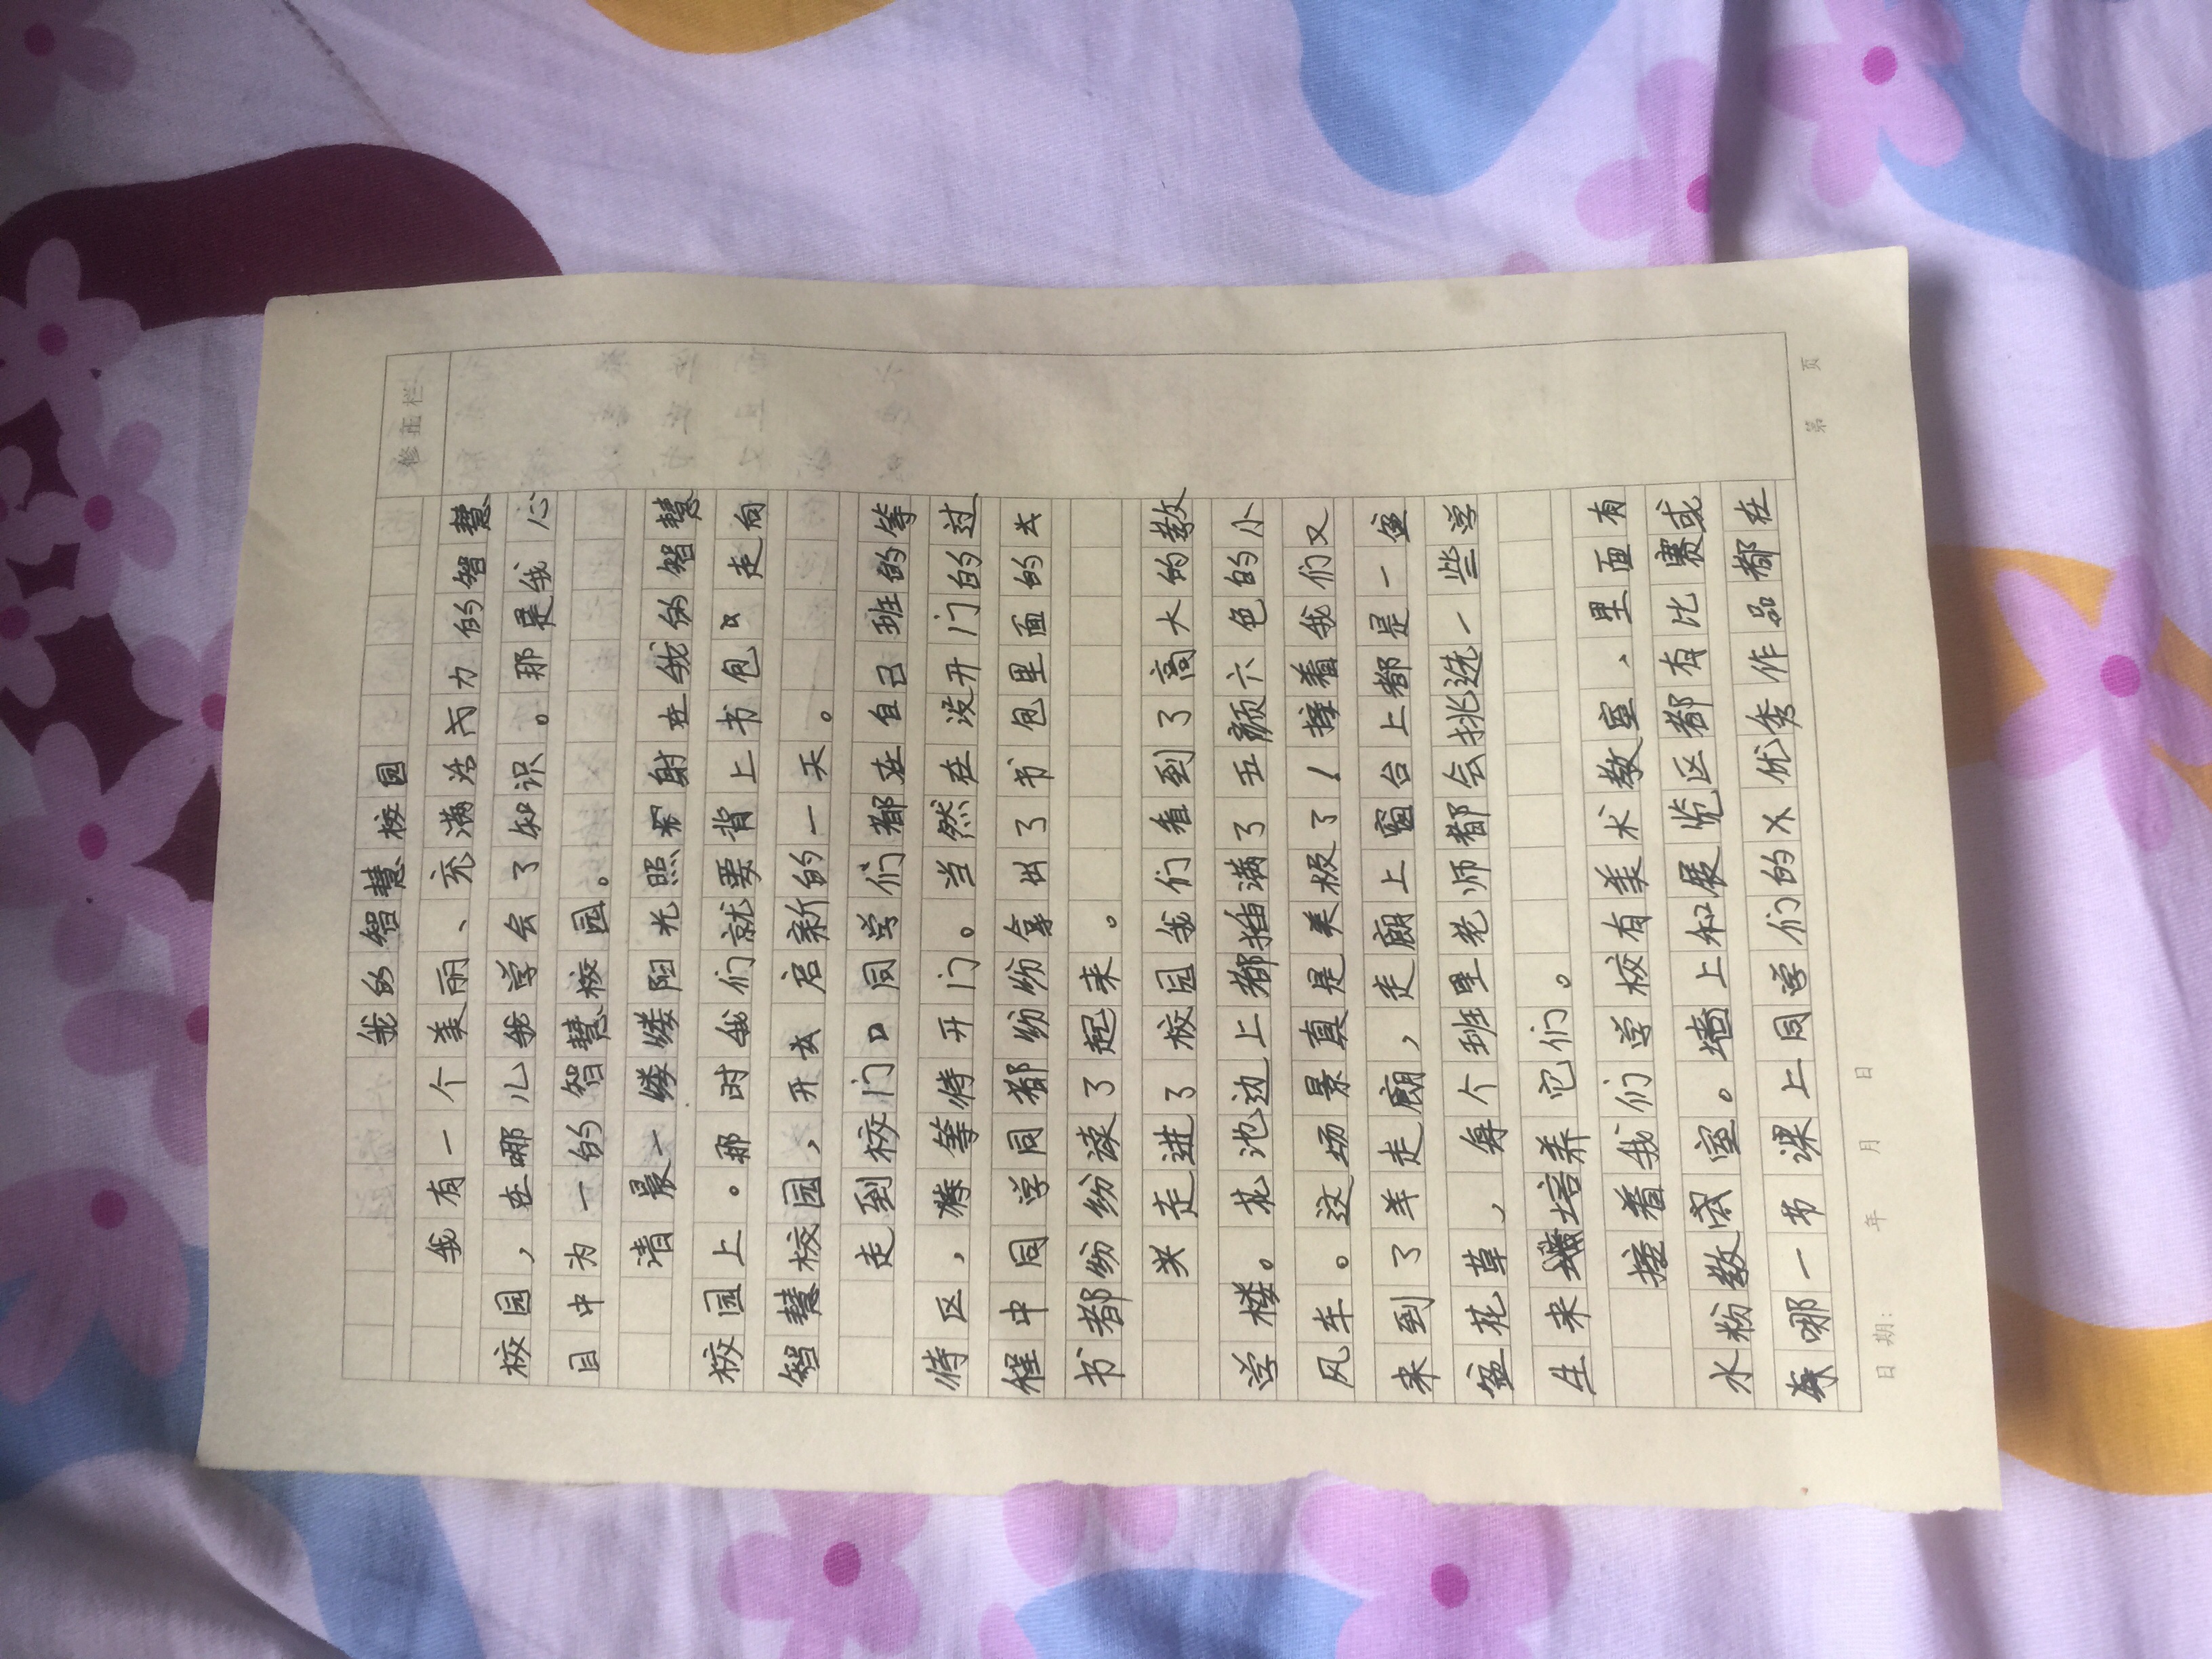 修正栏
我的智慧校园
我有一个美丽、充满活力的智慧
校园，在哪儿我学会了知识。那是我心
目中为一的智慧校园。
清晨一缕缕阳光照射在我的智慧
校园上。那时我们就要背上书包 走向
智慧校园，开去启新的一天。
走到校门口同学们都在自己班的等
待区，等待开门。当然在没开门的过
程中同学同都纷纷拿出了书包里面的
书都纷纷读了起来。
走进了校园我们看到了高大的教
学楼。花池边上都插满了五颜六色的小
风车。这场景真是美极了！接着我们又
来到了羊走廊，走廊上窗台上都是一盆
盆花草，每个班里老师都会挑选一些学
生来培养它们。
接着我们学校有美术教室、里面有
水粉教室。墙上和展览区都有比赛或
哪一节课上同学们的优秀作品都在
日期： 年 月 日
第 页